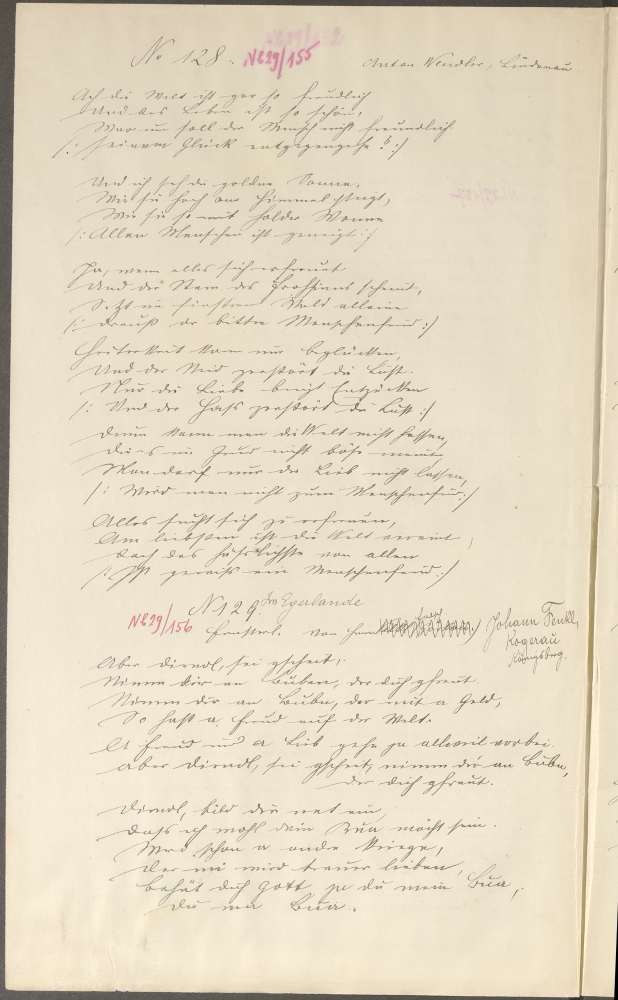 No 128. N229/155 Anton Wendler, Lindenau
Ach die Welt ist gar so freudlich
Und das Leben ist so schön,
Warum soll der Mensch nicht freundlich
/: seinem Glück entgegengehn? :/
Und ich seh die goldne Sonne,
Wie sie hoch am Himmel steigt,
Wie sie so mit holder Wonne
/: Allen Menschen ist geneigt :/
Ja, wenn alles sich erfreut
Und der Stern des Frohsinns scheint,
Sitzt im finstren Wald alleine
/: der bittre Menschenfeind :/
Heiterkeit kann nur beglücken,
Und der Neid zerstört die Lust.
Nur die Liebe bringt Entzücken
/: Und der Hass zerstört die Lust :/
Drum kann man die Welt nicht hassen,
Die's im Grund nicht böse meint,
Man darf nur die Lieb nicht lassen,
/: Wird man nicht zum Menschenfeind :/
Alles sucht sich zu erfreuen,
Am liebsten ist die Welt vereint,
Doch das hässlichste von allen
/: Ist gewiss ein Menschenfeind :/
N 129. Im Egerlande
N229/156 von Johann Fenkl,
Rogerau
Königsberg.
Aber Dirndl, sei gscheit,
Nimm dir an Buben, der dich gfreut.
Nimm dir an Bubn, der mit a Geld,
So hast a Freud auf der Welt.
A Freud und a Lieb gehn ja alleweil vorbei.
Aber Dirndl, sei gscheit, nimm dir an Bubn,
der dich gfreut.
Dirndl, bild dir net ein,
Dass ich wohl dein Bua möcht sein.
Wirst schon a andre kriegn,
Der mi wird treuer lieben,
Behüt dich Gott, du mein Bua,
du mei Bua.